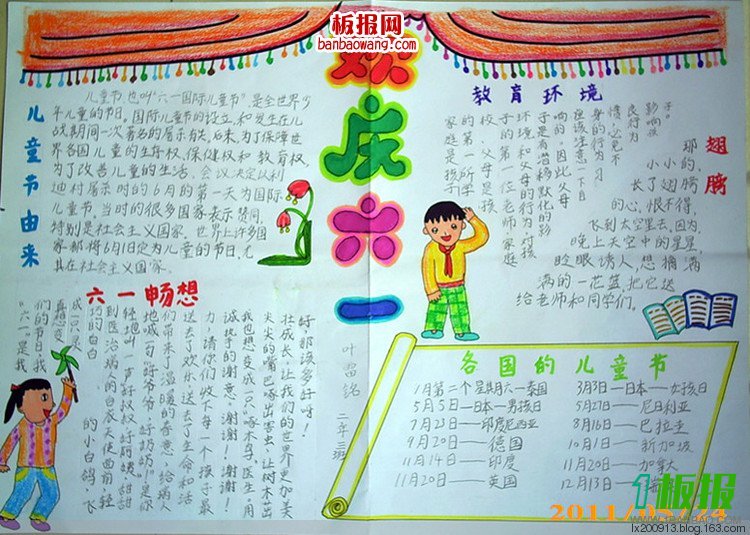 板报网
banbaowang.com
欢庆六一
儿童节由来
儿童节也叫“六一国际儿童节”,是全世界少
年儿童的节日。国际儿童节的设立,和发生在儿
战期间一次著名的屠杀有关。后来,为了保障世
界各国儿童的生存权、保健权和教育权,
为了改善儿童的生活,会议决定以利
迪村屠杀时的6月的第一天为国际
儿童节。当时的很多国家表示赞同,
特别是社会主义国家。世界上许多国
家都将6月1日定为儿童的节日,尤
其在社会主义国家。
教育环境
家庭是孩子所
的第一所学
校,父母是孩
子的第一位老师,家庭
翅膀
那
小小的,
长了翅膀
的心,恨不得,
飞到太空里去,因为,
晚上天空中的星星,
眨眼诱人,想摘满
满的一花篮,把它送
给老师和同学们。
六一畅想
“六一”是我
们的节日,我
真想变
成一只灵
巧的白
的小白鸽,飞
到医治病人的白衣天使面前,轻
轻地叫一声好叔叔好阿姨,甜甜
地喊一句好爷爷好奶奶,是你
们带来了温暖的春意,给病人
送去了欢乐,送去了生命和活
力,请你们收下每一个孩子最
诚挚的谢意,谢谢!谢谢!
我也想变成一只“啄木鸟”医生,用
尖尖的嘴巴啄出害虫,让树木茁
壮成长,让我们的世界更加美
好,那该多好呀!
叶思铭
二年三班
各国的儿童节
1月第二个星期六—泰国
3月3日—日本—女孩日
5月5日—日本—男孩日
5月27日—尼日利亚
7月23日—印度尼西亚
8月16日—巴拉圭
9月20日—德国
10月1日—新加坡
11月14日—印度
11月20日—加拿大
11月20日—英国
12月13日
板报
2011/05/24
lx200913.blog.163.com